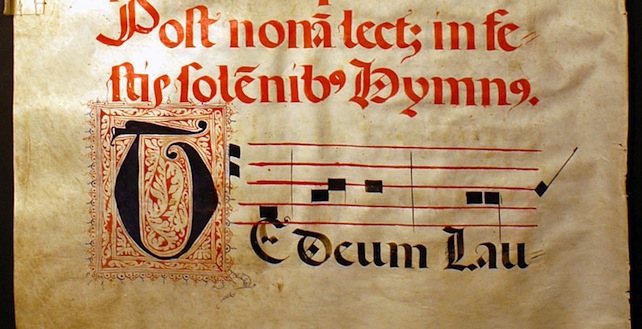 Post nonā lect; in fe
stis solēnibꝰ Hymnꝰ.
TE Deum Lau